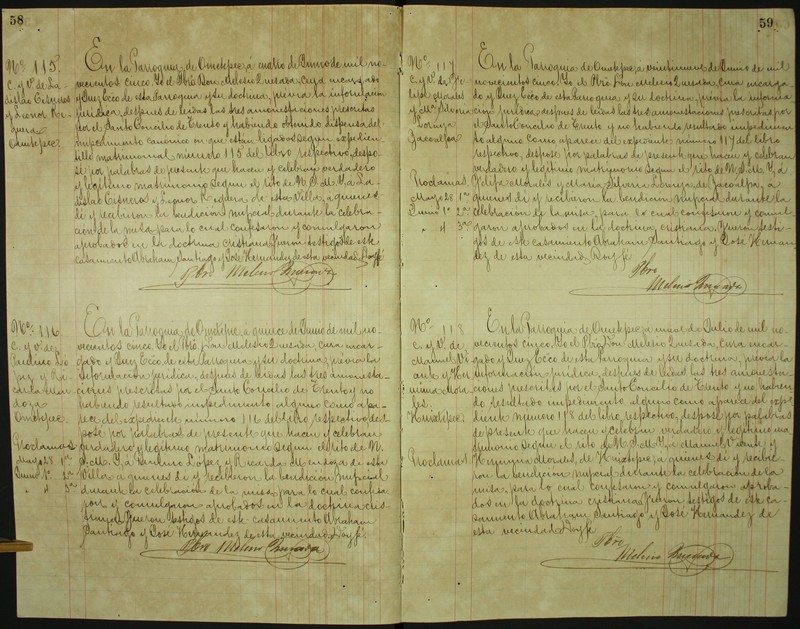 58
No. 115.
c. y v. de La-
dislao Cisneros
y Leonor Ri-
guera
Ometepec.
En la Parroquia de Ometepec, a cuatro de Junio de mil no-
vecientos cinco. Yo el Pbro Don Melesio Quezada, cura encargado
y Juez Ecco de esta Parroquia y su doctrina, previa la información
jurídica, despues de leidas las tres amonestaciones prescritas
por el Santo Concilio de Trento y habiendo obtenido dispensa del
impedimento canónico en que estan ligados segun expedien-
tillo matrimonial número 115 del libro respectivo, despo-
sé por palabras de presente que hacen y celebran verdadero
y legítimo matrimonio segun el rito de N. S. M. Y. a La-
dislao Cisneros y Leonor Riguera de esta Villa, a quienes
dí y recibieron la bendición nupcial durante la celebra-
ción de la misa, para lo cual confesaron y comulgaron
aprobados en la doctrina cristiana. Fueron testigos de este
casamiento Abraham Santiago y José Hernandez de esta vecindad. Doy fe
Pbro Melesio Quezada
No. 116.
c. y v. de
Paulino Lo-
pez y Ri-
carda Men-
doza
Ometepec.
Proclamas
Mayo 28 1a.
Junio 1o. 2a.
" 4 3a.
En la Parroquia de Ometepec, a quince de Junio de mil no-
vecientos cinco. Yo el Pbro Don Melesio Quezada, cura encar-
gado y Juez Ecco de esta Parroquia y su doctrina, previa la
información jurídica, despues de leidas las tres amonesta-
ciones prescritas por el Santo Concilio de Trento y no
habiendo resultado impedimento alguno como apa-
rece del expediente número 116 del libro respectivo, des-
posé por palabras de presente que hacen y celebran
verdadero y legítimo matrimonio segun el rito de N.
S. M. Y. a Paulino Lopez y Ricarda Mendoza de esta
Villa, a quienes dí y recibieron la bendición nupcial
durante la celebración de la misa, para lo cual confesa-
ron y comulgaron aprobados en la doctrina cris-
tiana. Fueron testigos de este casamiento Abraham
Santiago y José Hernandez de esta vecindad. Doy fe.
Pbro Melesio Quezada
59
No. 117
c. y v. de Fe-
lipe Morales
y Ma. Silveria
Lorenza
Jacoalpa
Proclamas
Mayo 28 1a.
Junio 1o. 2a.
" 4 3a.
En la Parroquia de Ometepec, a de Junio de mil
novecientos cinco. Yo el Pbro Don Melesio Quezada, Cura encarga-
do y Juez Ecco de esta Parroquia y su doctrina, previa la informa-
ción jurídica, despues de leidas las tres amonestaciones prescritas por
el Santo Concilio de Trento y no habiendo resultado impedimen-
to alguno como aparece del expediente número 117 del libro
respectivo, desposé por palabras de presente que hacen y celebran
verdadero y legítimo matrimonio segun el rito de N. S. M. Y. á
Felipe Morales y María Silveria Lorenza de Jacoalpa, a
quienes dí y recibieron la bendición nupcial durante la
celebración de la misa, para lo cual confesaron y comul-
garon aprobados en la doctrina cristiana. Fueron testi-
gos de este casamiento Abraham Santiago y José Hernan-
dez de esta vecindad. Doy fe
Pbro
Melesio Quezada
No. 118.
c. y v. de
Manuel Vi-
cente y Her-
minia Mora-
les.
Huixtepec
Proclamas
En la Parroquia de Ometepec, a nueve de Julio de mil no-
vecientos cinco. Yo el Pbro Don Melesio Quezada, cura encar-
gado y Juez Ecco. de esta Parroquia y su doctrina, previa la
información jurídica, despues de leidas las tres amonesta-
ciones prescritas por el Santo Concilio de Trento y no habien-
do resultado impedimento alguno como aparece del expe-
diente número 118 del libro respectivo, desposé por palabras
de presente que hacen y celebran verdadero y legítimo ma-
trimonio segun el rito de N. S. M. Y. a Manuel Vicente y
Herminia Morales, de Huixtepec, a quienes dí y recibie-
ron la bendición nupcial durante la celebración de la
misa, para lo cual confesaron y comulgaron aproba-
dos en la doctrina cristiana. Fueron testigos de este ca-
samiento Abraham Santiago y José Hernandez de
esta vecindad. Doy fe
Pbro
Melesio Quezada